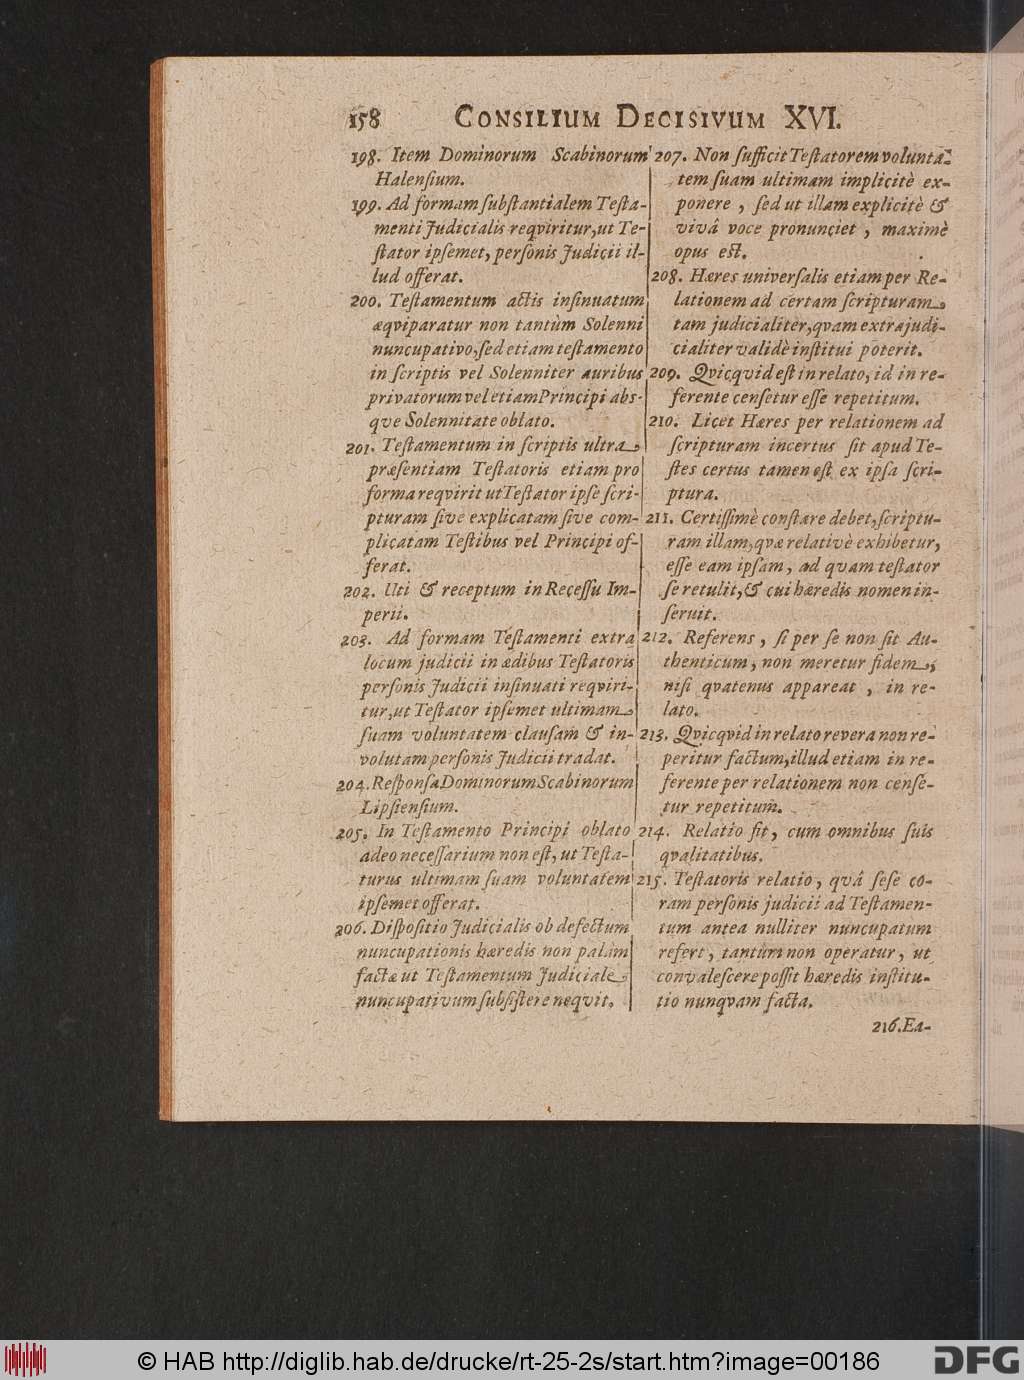 158 CONSILIUM DECISIVUM XVI.
198. Item Dominorum Scabinorum
Halensium.
199. Ad formam substantialem Testa-
menti Judicialis reqviritur, ut Te-
stator ipsemet, personis Judicii il-
lud offerat.
200. Testamentum actis insinuatum
æqviparatur non tantùm Solenni
nuncupativo, sed etiam testamento
in scriptis vel Solenniter auribus
privatorum vel etiam Principi abs-
qve Solennitate oblato.
201. Testamentum in scriptis ultra
præsentiam Testatoris etiam pro
forma reqvirit ut Testator ipse scri-
pturam sive explicatam sive com-
plicatam Testibus vel Principi of-
ferat.
202. Uti & receptum in Recessu Im-
perii.
203. Ad formam Testamenti extra
locum judicii in ædibus Testatoris
personis Judicii insinuati reqviri-
tur, ut Testator ipsemet ultimam
suam voluntatem clausam & in-
volutam personis Judicii tradat.
204. Responsa Dominorum Scabinorum
Lipsiensium.
205. In Testamento Principi oblato
adeo necessarium non est, ut Testa-
turus ultimam suam voluntatem
ipsemet offerat.
206. Dispositio Judicialis ob defectum
nuncupationis hæredis non palàm
factæ ut Testamentum Judiciale
nuncupativum subsistere neqvit.
207. Non sufficit Testatorem volunta-
tem suam ultimam implicitè ex-
ponere, sed ut illam explicitè &
vivâ voce pronunciet, maximè
opus est.
208. Hæres universalis etiam per Re-
lationem ad certam scripturam
tam judicialiter, qvam extrajudi-
cialiter validè institui poterit.
209. Qvicqvid est in relato, id in re-
ferente censetur esse repetitum.
210. Licet Hæres per relationem ad
scripturam incertus sit apud Te-
stes certus tamen est ex ipsa scri-
ptura.
211. Certissimè constare debet, scriptu-
ram illam, qvæ relativè exhibetur,
esse eam ipsam, ad qvam testator
se retulit, & cui hæredis nomen in-
seruit.
212. Referens, si per se non sit Au-
thenticum, non meretur fidem,
nisi qvatenus appareat, in re-
lato.
213. Qvicqvid in relato revera non re-
peritur factum, illud etiam in re-
ferente per relationem non conse-
tur repetitum.
214. Relatio fit, cum omnibus suis
qvalitatibus.
215. Testatoris relatio, qvâ sese co-
ram personis judicii ad Testamen-
tum antea nulliter nuncupatum
refert, tantùm non operatur, ut
convalescere possit hæredis institu-
tio nunqvam facta.
216. Ea-
© HAB http://diglib.hab.de/drucke/rt-25-2s/start.htm?image=00186
DFG